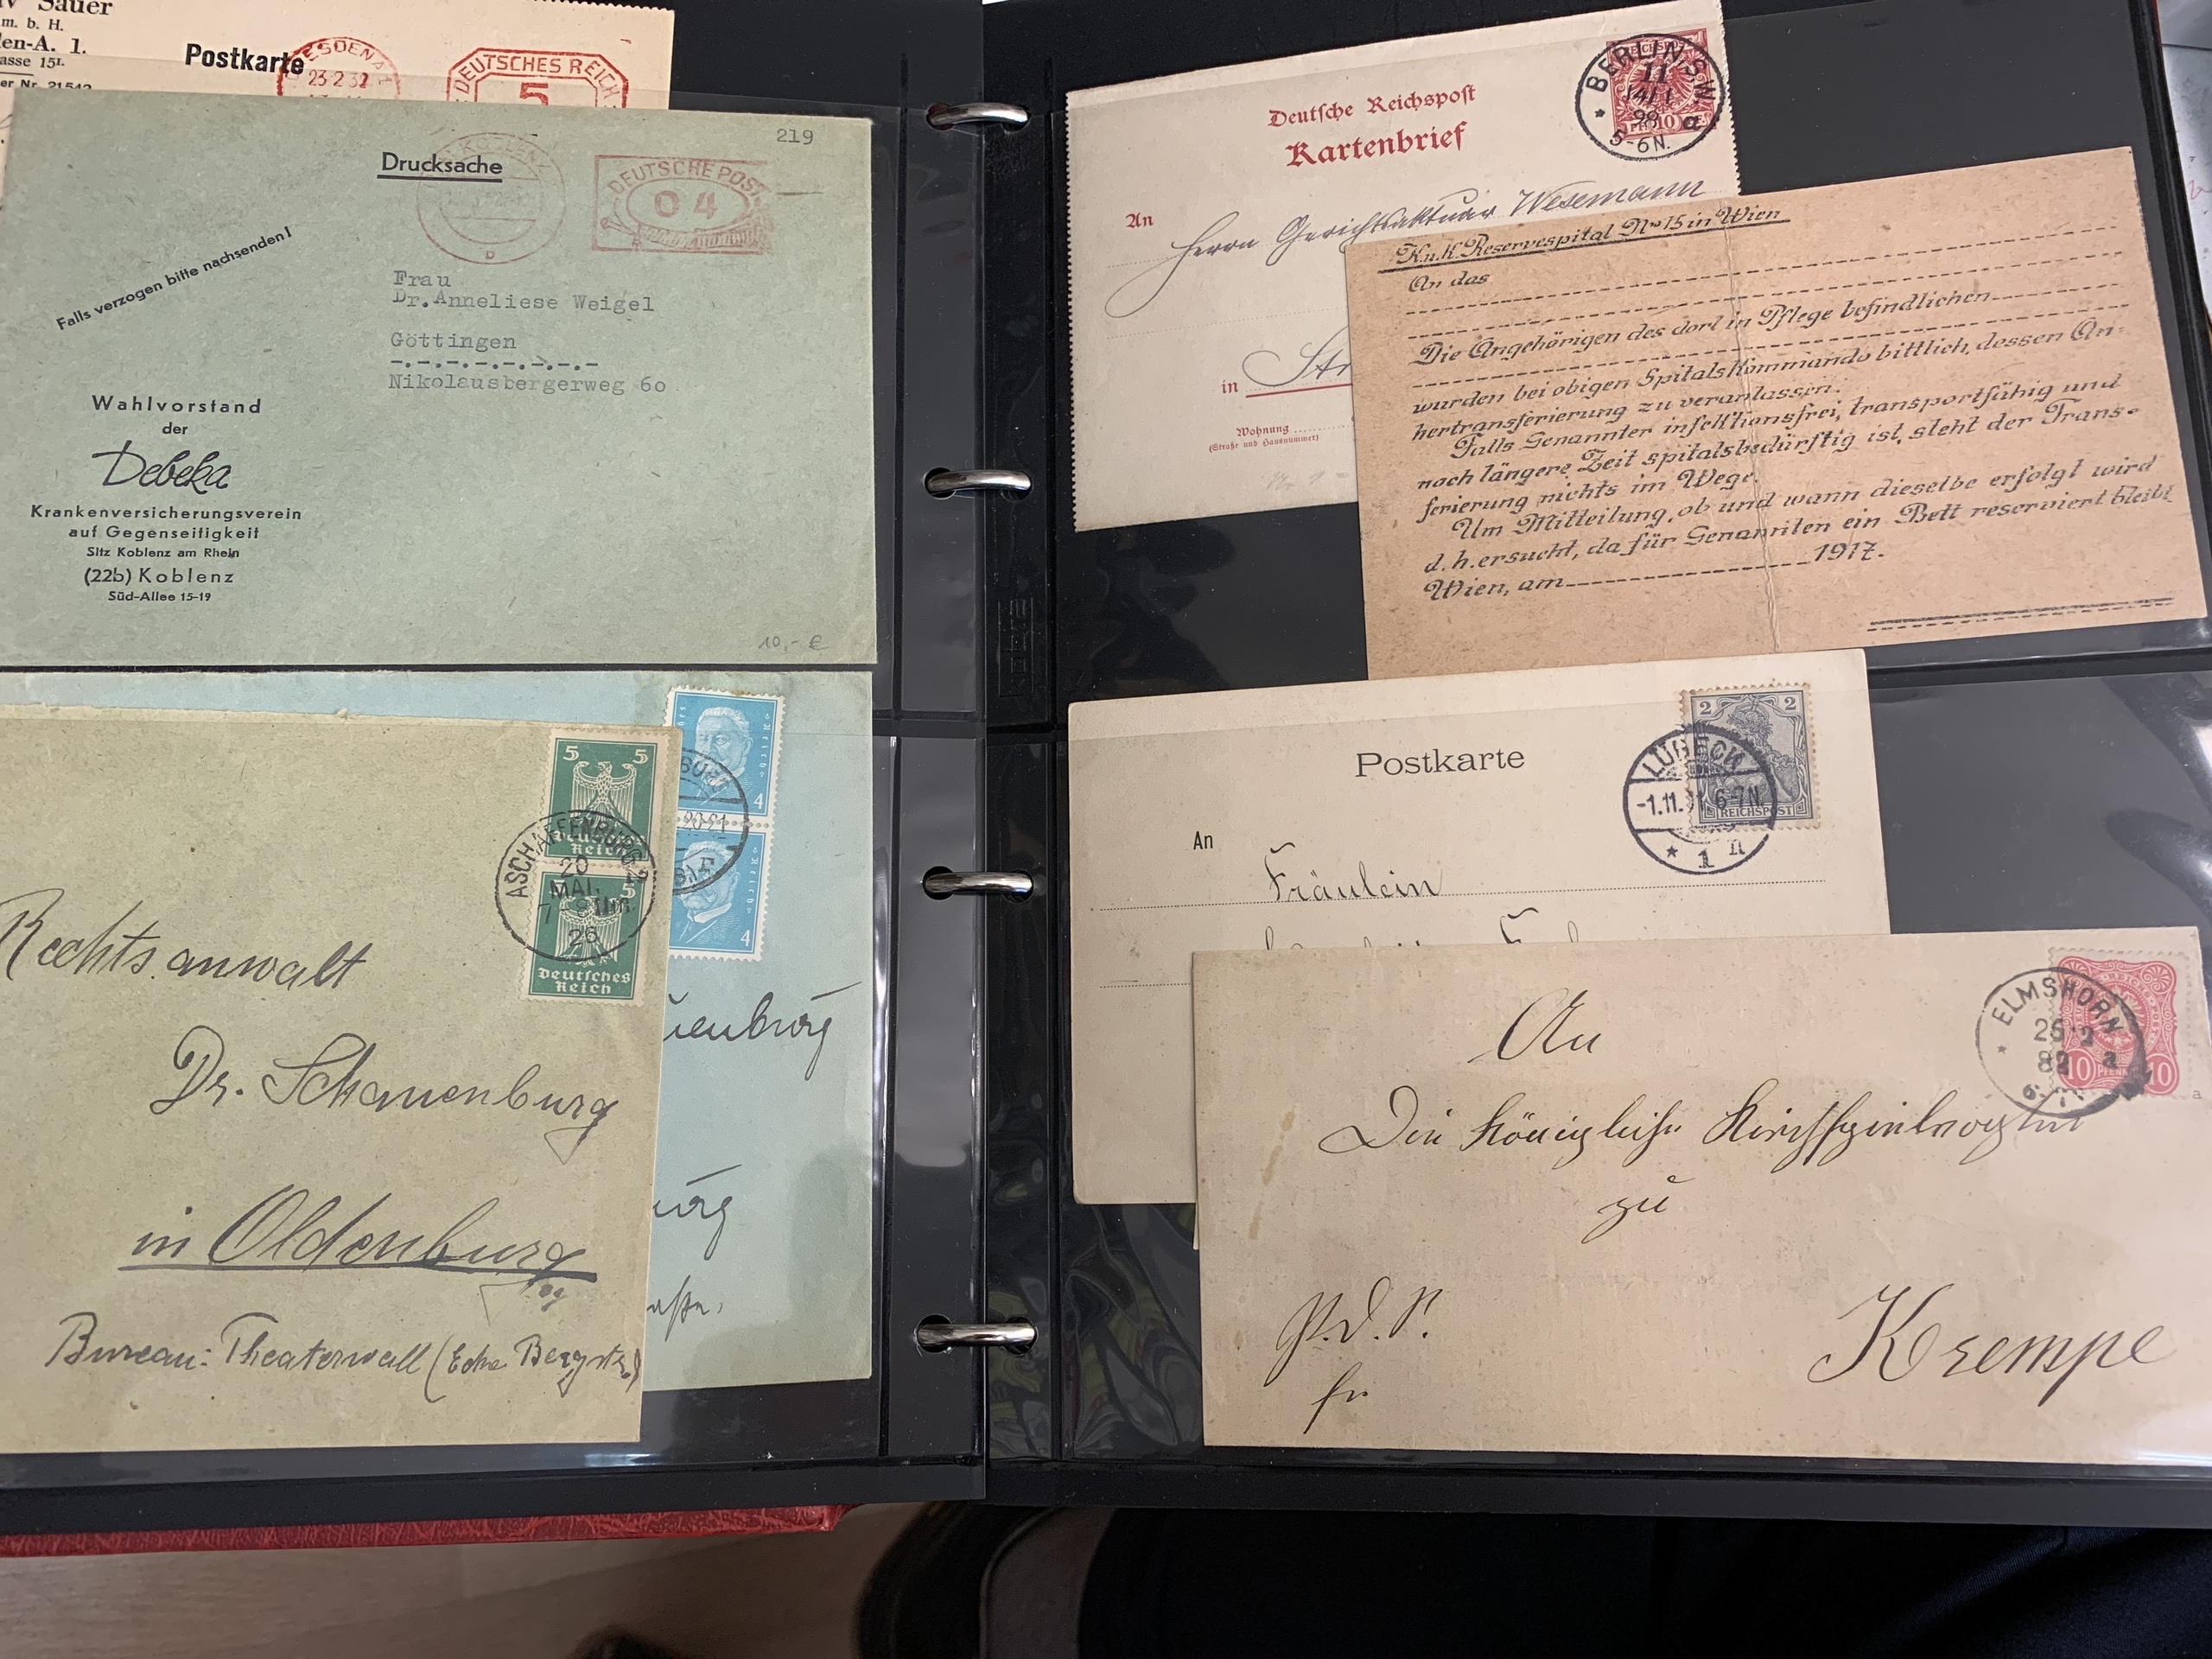 Sauer
m. b. H.
en-A. 1.
asse 15I.
er Nr. 21542
Postkarte
DRESDEN A 1
23.2.32
DEUTSCHES REICH
5
219
Drucksache
DEUTSCHE POST
04
Falls verzogen bitte nachsenden!
Frau
Dr.Anneliese Weigel
Göttingen
-.-.-.-.-.-.-.-
Nikolausbergerweg 60
Wahlvorstand
der
Debeka
Krankenversicherungsverein
auf Gegenseitigkeit
Sitz Koblenz am Rhein
(22b) Koblenz
Süd-Allee 15-19
10,- €
5 5
Deutsches
Reich
ASCHAFFENBURG 2
20
MAI.
7-8 Nm.
26
5
Deutsches
Reich
4
20-21
4
Rechtsanwalt
Dr. Schauenburg
in Oldenburg
Bureau: Theaterwall (Ecke Bergstr.)
uenburg
urg
Deutsche Reichspost
Kartenbrief
BERLIN, S.W.
11
98
5-6N.
a
10
An
Herrn Gerichtsaktuar Wesemann
in Str
Wohnung
(Straße und Hausnummer)
K.u.K. Reservespital No 15 in Wien
An das
Die Angehörigen des dort in Pflege befindlichen
wurden bei obigen Spitalskommando bittlich, dessen An-
hertransferierung zu veranlassen.
Falls Genannter infektionsfrei, transportfähig und
noch längere Zeit spitalsbedürftig ist, steht der Trans-
ferierung nichts im Wege.
Um Mitteilung, ob und wann dieselbe erfolgt wird
d. h. ersucht, da für Genannten ein Bett reserviert bleibt
Wien, am 1917.
Postkarte
2 2
REICHSPOST
LÜBECK
-1.11.01 6-7N.
* 1
An
Fräulein
ELMSHORN
26 2
82 a
10 PFENNIG 10
a
An
Die Königliche Kirchspielvogtei
zu
Krempe
P.d.S.
fr